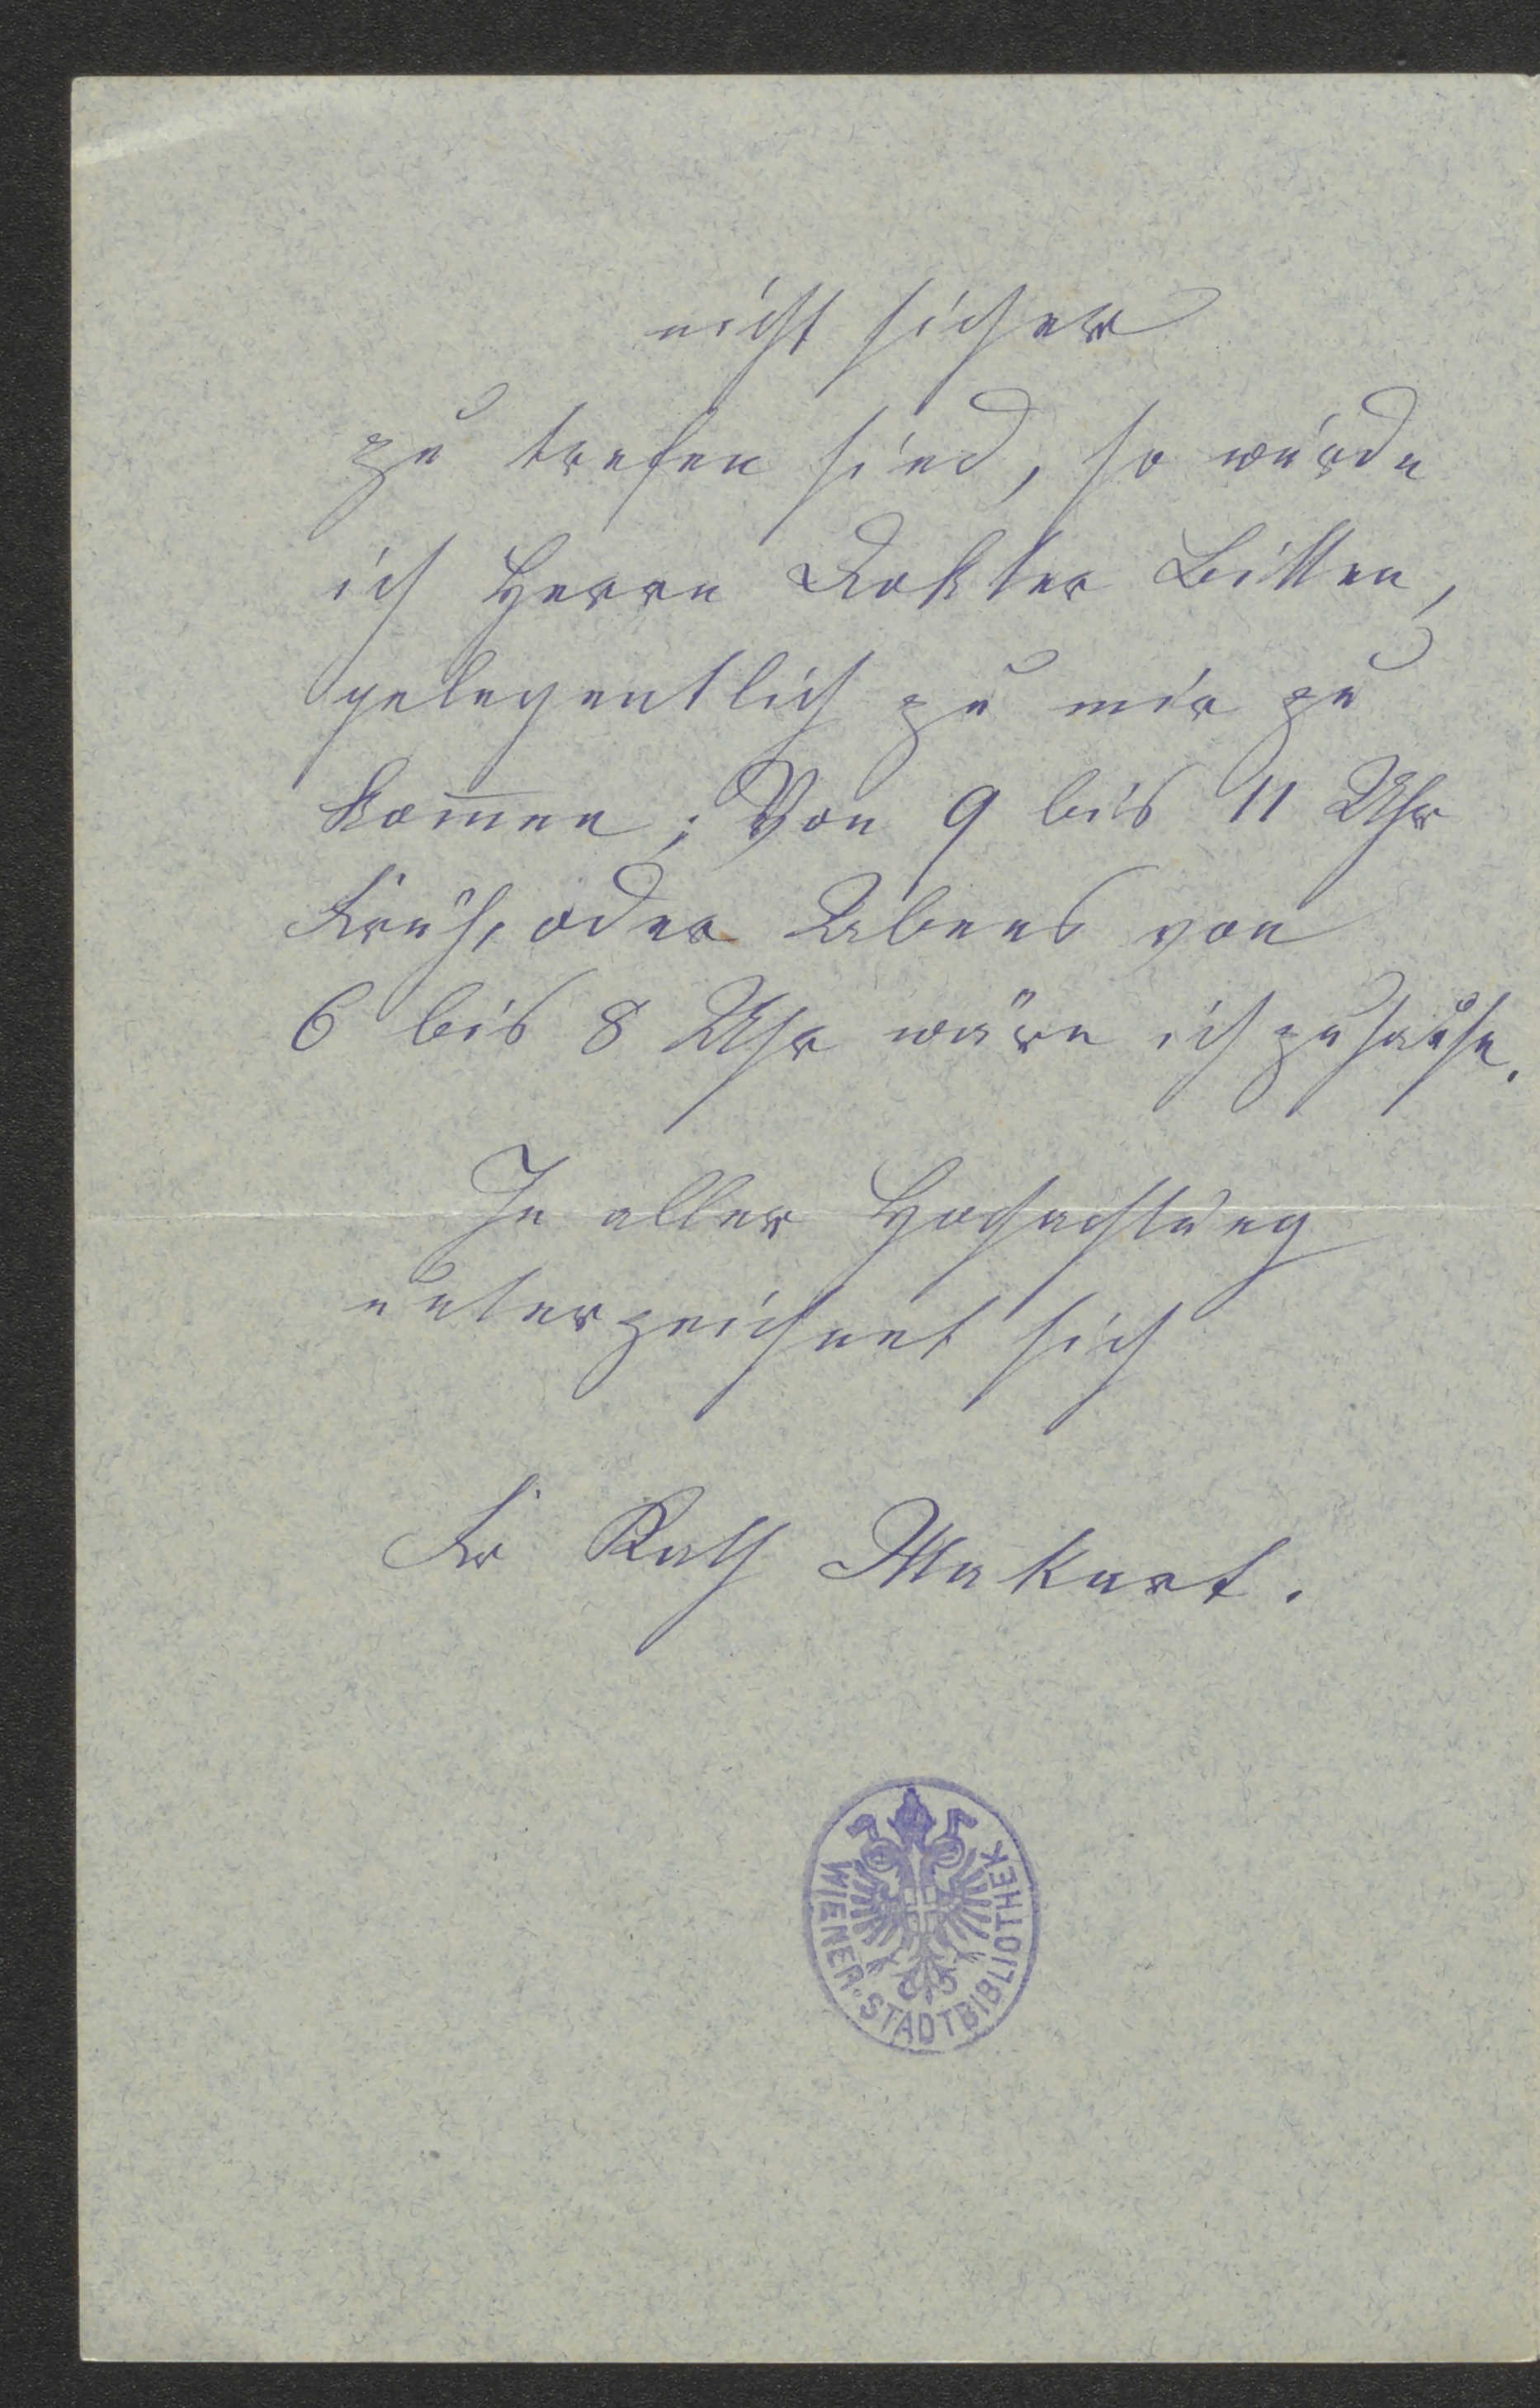 nicht sicher
zu trefen sind, so würde
ich Herrn Dokter Bitten,
gelegentlich zu mir zu
kom̅en; Von 9 bis 11 Uhr
Früh, oder Abens von
6 bis 8 Uhr wäre ich zuhause.
In aller Hochachtung
unterzeichnet sich
Fr Rath Makart.
WIENER·STADTBIBLIOTHEK